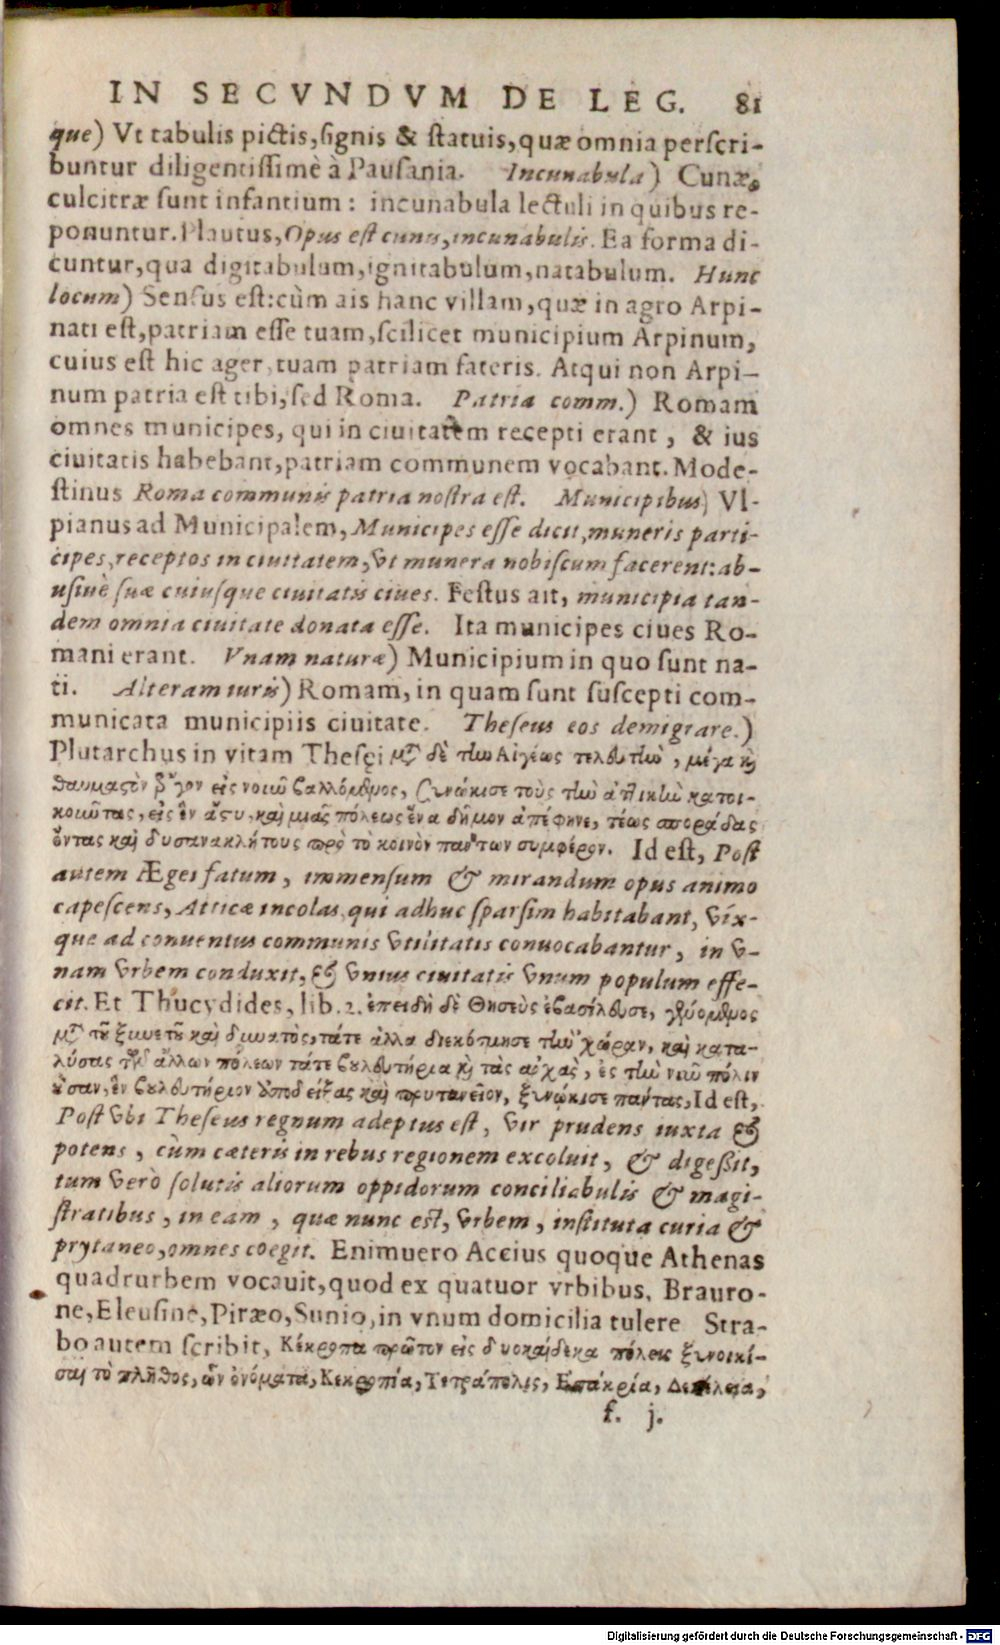 IN SECVNDVM DE LEG. 81
que) Vt tabulis pictis, signis & statuis, quæ omnia perscri-
buntur diligentissimè à Pausania. Incunabula) Cunæ,
culcitræ sunt infantium: incunabula lectuli in quibus re-
ponuntur. Plautus, Opus est cunis, incunabulis. Ea forma di-
cuntur, qua digitabulum, ignitabulum, natabulum. Hunc
locum) Sensus est: cùm ais hanc villam, quæ in agro Arpi-
nati est, patriam esse tuam, scilicet municipium Arpinum,
cuius est hic ager, tuam patriam fateris. Atqui non Arpi-
num patria est tibi, sed Roma. Patria comm.) Romam
omnes municipes, qui in ciuitatem recepti erant, & ius
ciuitatis habebant, patriam communem vocabant. Mode-
stinus Roma communis patria nostra est. Municipibus) Vl-
pianus ad Municipalem, Municipes esse dicit, muneris parti-
cipes, receptos in ciuitatem, vt munera nobiscum facerent: ab-
usiuè suæ cuiusque ciuitatis ciues. Festus ait, municipia tan-
dem omnia ciuitate donata esse. Ita municipes ciues Ro-
mani erant. Vnam naturæ) Municipium in quo sunt na-
ti. Alteram iuris) Romam, in quam sunt suscepti com-
municata municipiis ciuitate. Theseus eos demigrare.)
Plutarchus in vitam Thesęi μετὰ δὲ τὴν Αἰγέως τελευτὴν, μέγα καὶ
θαυμαστὸν ἔργον εἰς νοιῶ βαλλόμενος, συνώκισε τοὺς τὴν ἀττικὴν κατοι-
κοιῶτας, εἰς ἓν ἄστυ, καὶ μιᾶς πόλεως ἕνα δῆμον ἀπέφηνε, τέως σποράδας
ὄντας καὶ δυσανακλήτους πρὸ τὸ κοινὸν πάντων συμφέρον. Id est, Post
autem Ægei fatum, immensum & mirandum opus animo
capescens, Atticæ incolas, qui adhuc sparsim habitabant, vix-
que ad conuentus communis vtilitatis conuocabantur, in v-
nam vrbem conduxit, & vnius ciuitatis vnum populum effe-
cit. Et Thucydides, lib. 2. ἐπειδὴ δὲ Θησεὺς ἐβασίλευσε, γενόμενος
μετὰ τοῦ ξυνετοῦ καὶ δυνατὸς, τάτε ἄλλα διεκόσμησε τὴν χώραν, καὶ κατα-
λύσας τῶν ἄλλων πόλεων τάτε βουλευτήρια καὶ τὰς ἀρχὰς, ἐς τὴν νῦν πόλιν
οὖσαν, ἓν βουλευτήριον ἀποδείξας καὶ πρυτανεῖον, ξυνώκισε πάντας, Id est,
Post vbi Theseus regnum adeptus est, vir prudens iuxta &
potens, cùm cæteris in rebus regionem excoluit, & digessit,
tum verò solutis aliorum oppidorum conciliabulis & magi-
stratibus, in eam, quæ nunc est, vrbem, instituta curia &
prytaneo, omnes coegit. Enimuero Accius quoque Athenas
quadrurbem vocauit, quod ex quatuor vrbibus, Brauro-
ne, Eleusine, Piræo, Sunio, in vnum domicilia tulere Stra-
bo autem scribit, Κέκροπα πρῶτον εἰς δυοκαίδεκα πόλεις ξυνοικί-
σαι τὸ πλῆθος, ὧν ὀνόματα, Κεκροπία, Τετράπολις, Επάκρία, Δεκέλεια,
f. j.
Digitalisierung gefördert durch die Deutsche Forschungsgemeinschaft - DFG